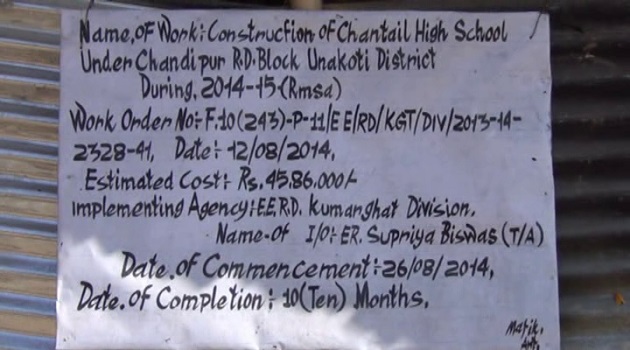 Name,of Work:-Construction of Chantail High School
Under Chandipur R.D.Block Unakoti District
During,2014-15-(Rmsa)
Work Order No:-F.10(243)-P-11/EE/RD/KGT/DIV/2013-14-
2328-41, Date:-12/08/2014,
Estimated Cost:- Rs,45,86.000/-
Implementing Agency:-EE.R.D. Kumarghat Division.
Name-of I/O:-ER. Supriya Biswas (T/A)
Date.of Commencement:-26/08/2014,
Date.of Completion:- 10(Ten) Months,